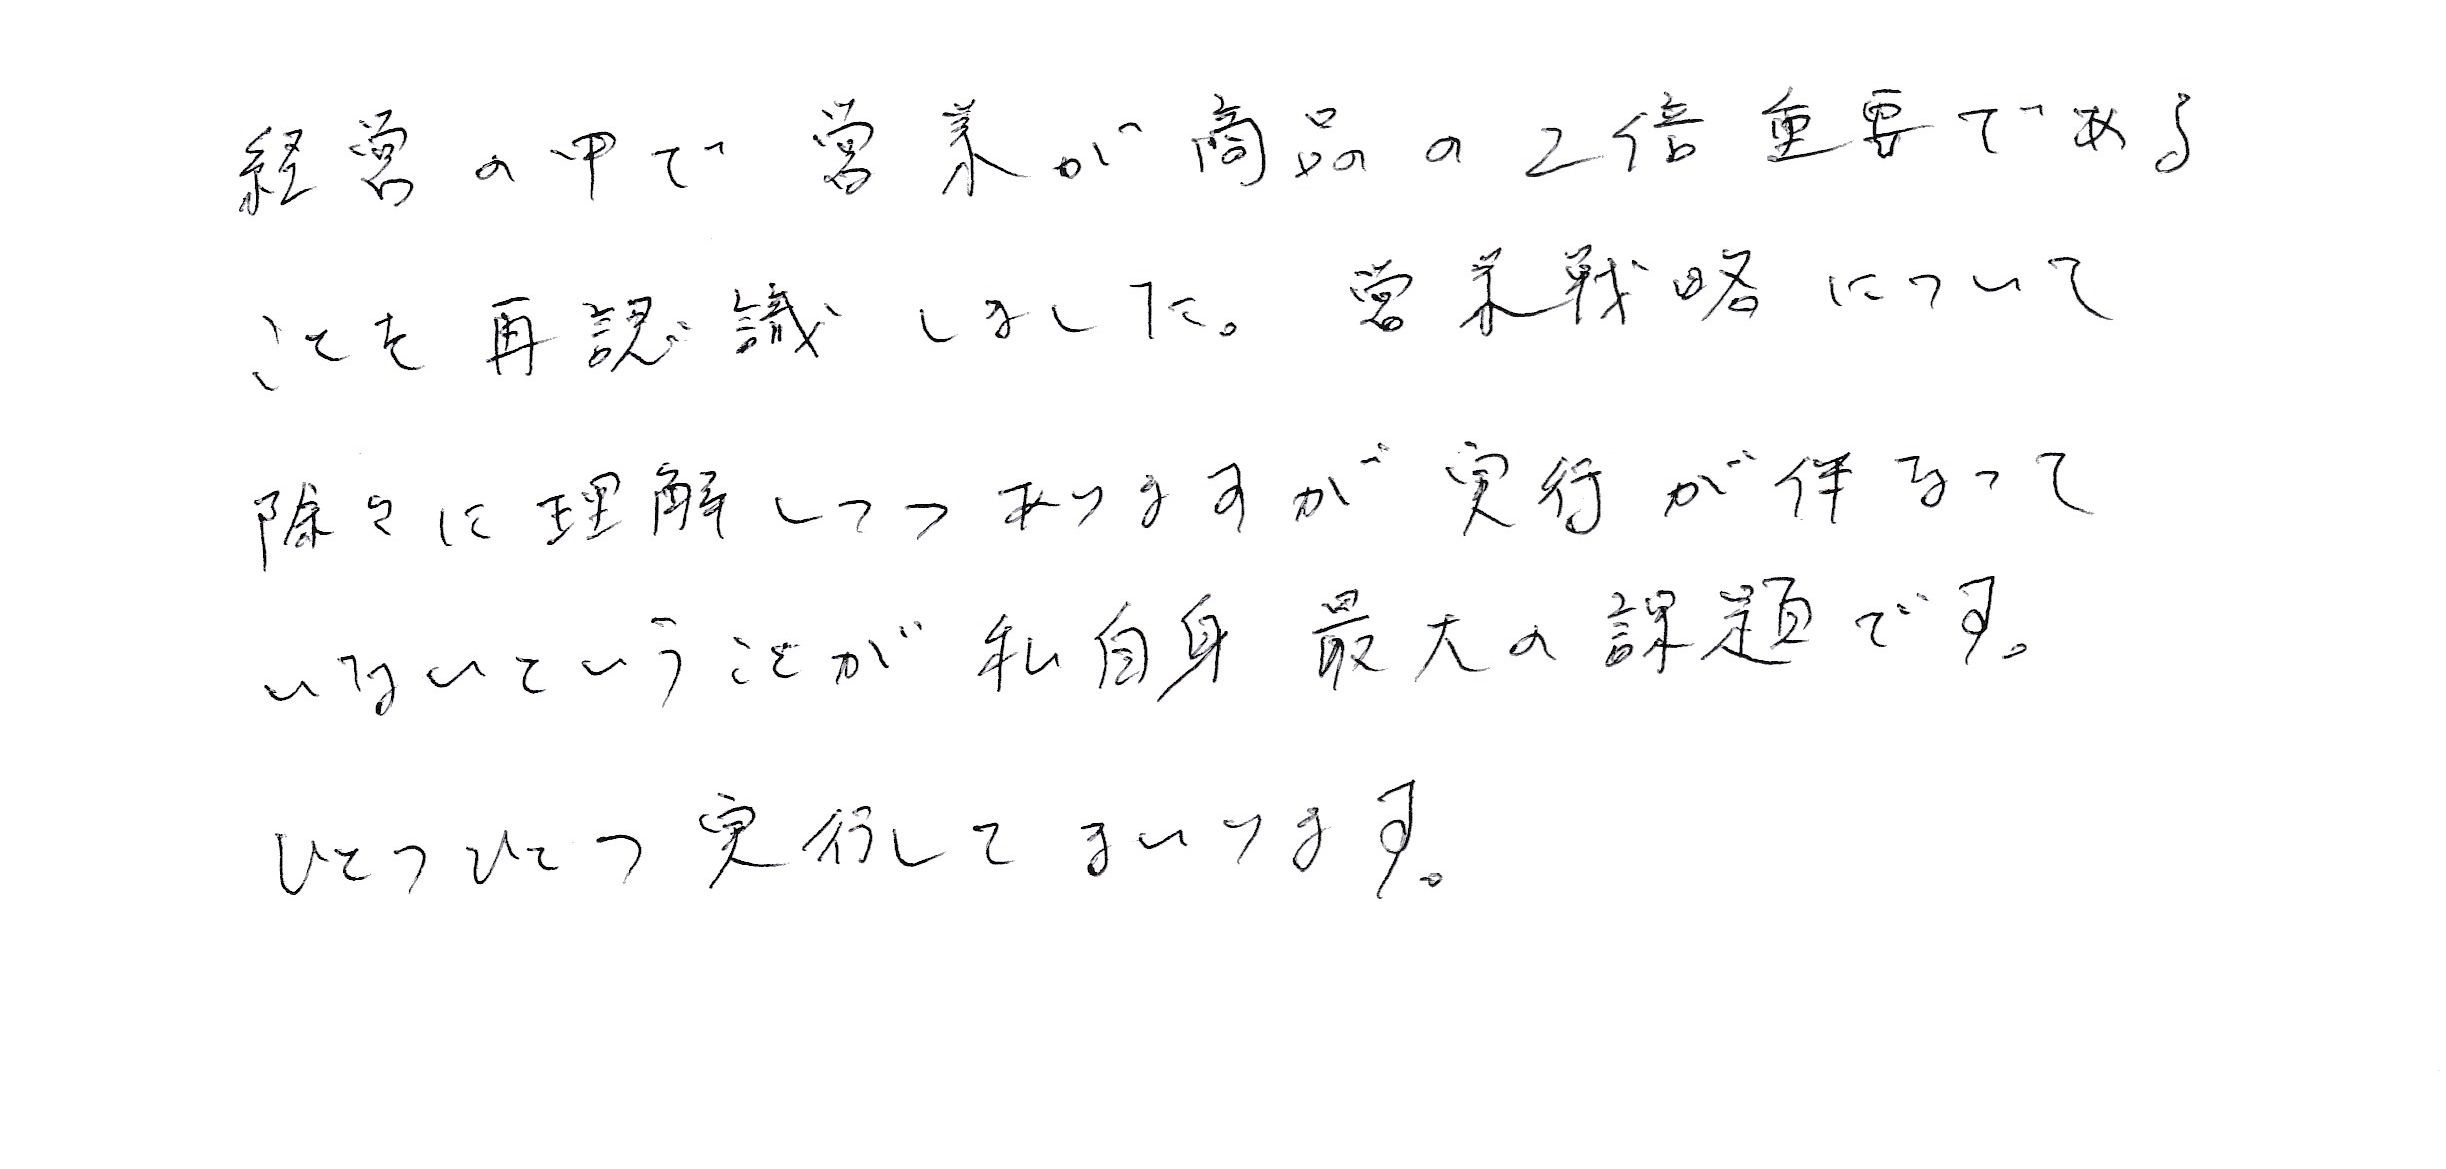 経営の中で営業が商品の2倍重要である
ことを再認識しました。営業戦略について
除々に理解しつつありますが実行が伴なって
いないということが私自身最大の課題です。
ひとつひとつ実行してまいります。